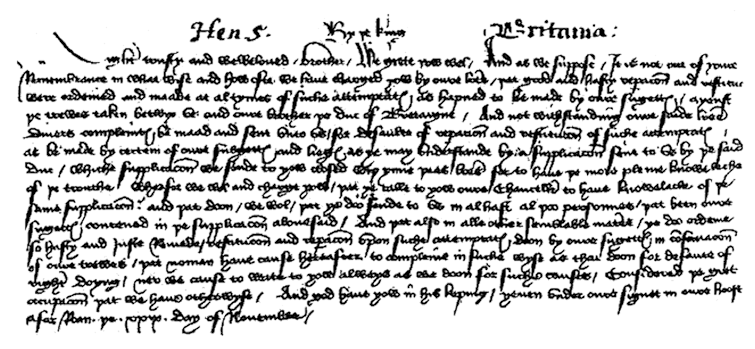 Hen 5. By þe king Britania:
trusty and welbeloved brother / We grete yow wel / And as we suppose / it is not oute of youre
Remembrance in what wyse and how ofte we have charged yow by oure lettres / þat good and hasty reparacōn and restitucōn
were ordeined and maade at al tymes of suche attemptatz / as hapned to be made by oure sugettz / ayenst
þe trewes taken betwyx us and oure brother þe duc of Bretaigne / And not withstanding oure saide lettres
divers complaintz be maad and sent unto us / for defaulte of reparacōn and restitucōn of suche attemptatz /
as be made by certein of oure subgettz and liegez / as ye may understande by a supplicacōn sent to us by þe said
duc / whiche supplicacōn we sende to yow closed wiþynne þees lettres for to have þe more pleine knoweleche
of þe trouthe / Wherfor we wol and charge yow / þat ye calle to yow oure Chaunceller to have knowelache of þe
same supplicacōn / and þat doon / we wol / þat ye doo sende to us in al hast al þoo personnes / þat been oure
sugettz contened in þe supplicacōn abovesaid / And þat also in alle other semblable matere / ye do ordene
so hasty and Juste Remede / restitucōn and reparacōn upon suche attemptatz / doon by oure sugettz in cōservacōn
of oure trewes / þat noman have cause hereafter / to compleine in suche wyse as thai doon for defaute of
right doyng / ner we cause to write to yow always as we doon for suche causes / Considered þe gret
occupacōn þat we have otherwyse / And god have yow in his keping / yeven under oure signet in oure hoost
afor Roan . þe . xxix . day of Novembre /